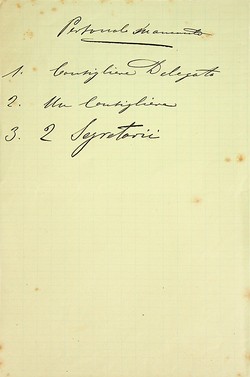 Personale mancante
1. Consigliere Delegato
2. Un Consigliere
3. 2 Segretarii